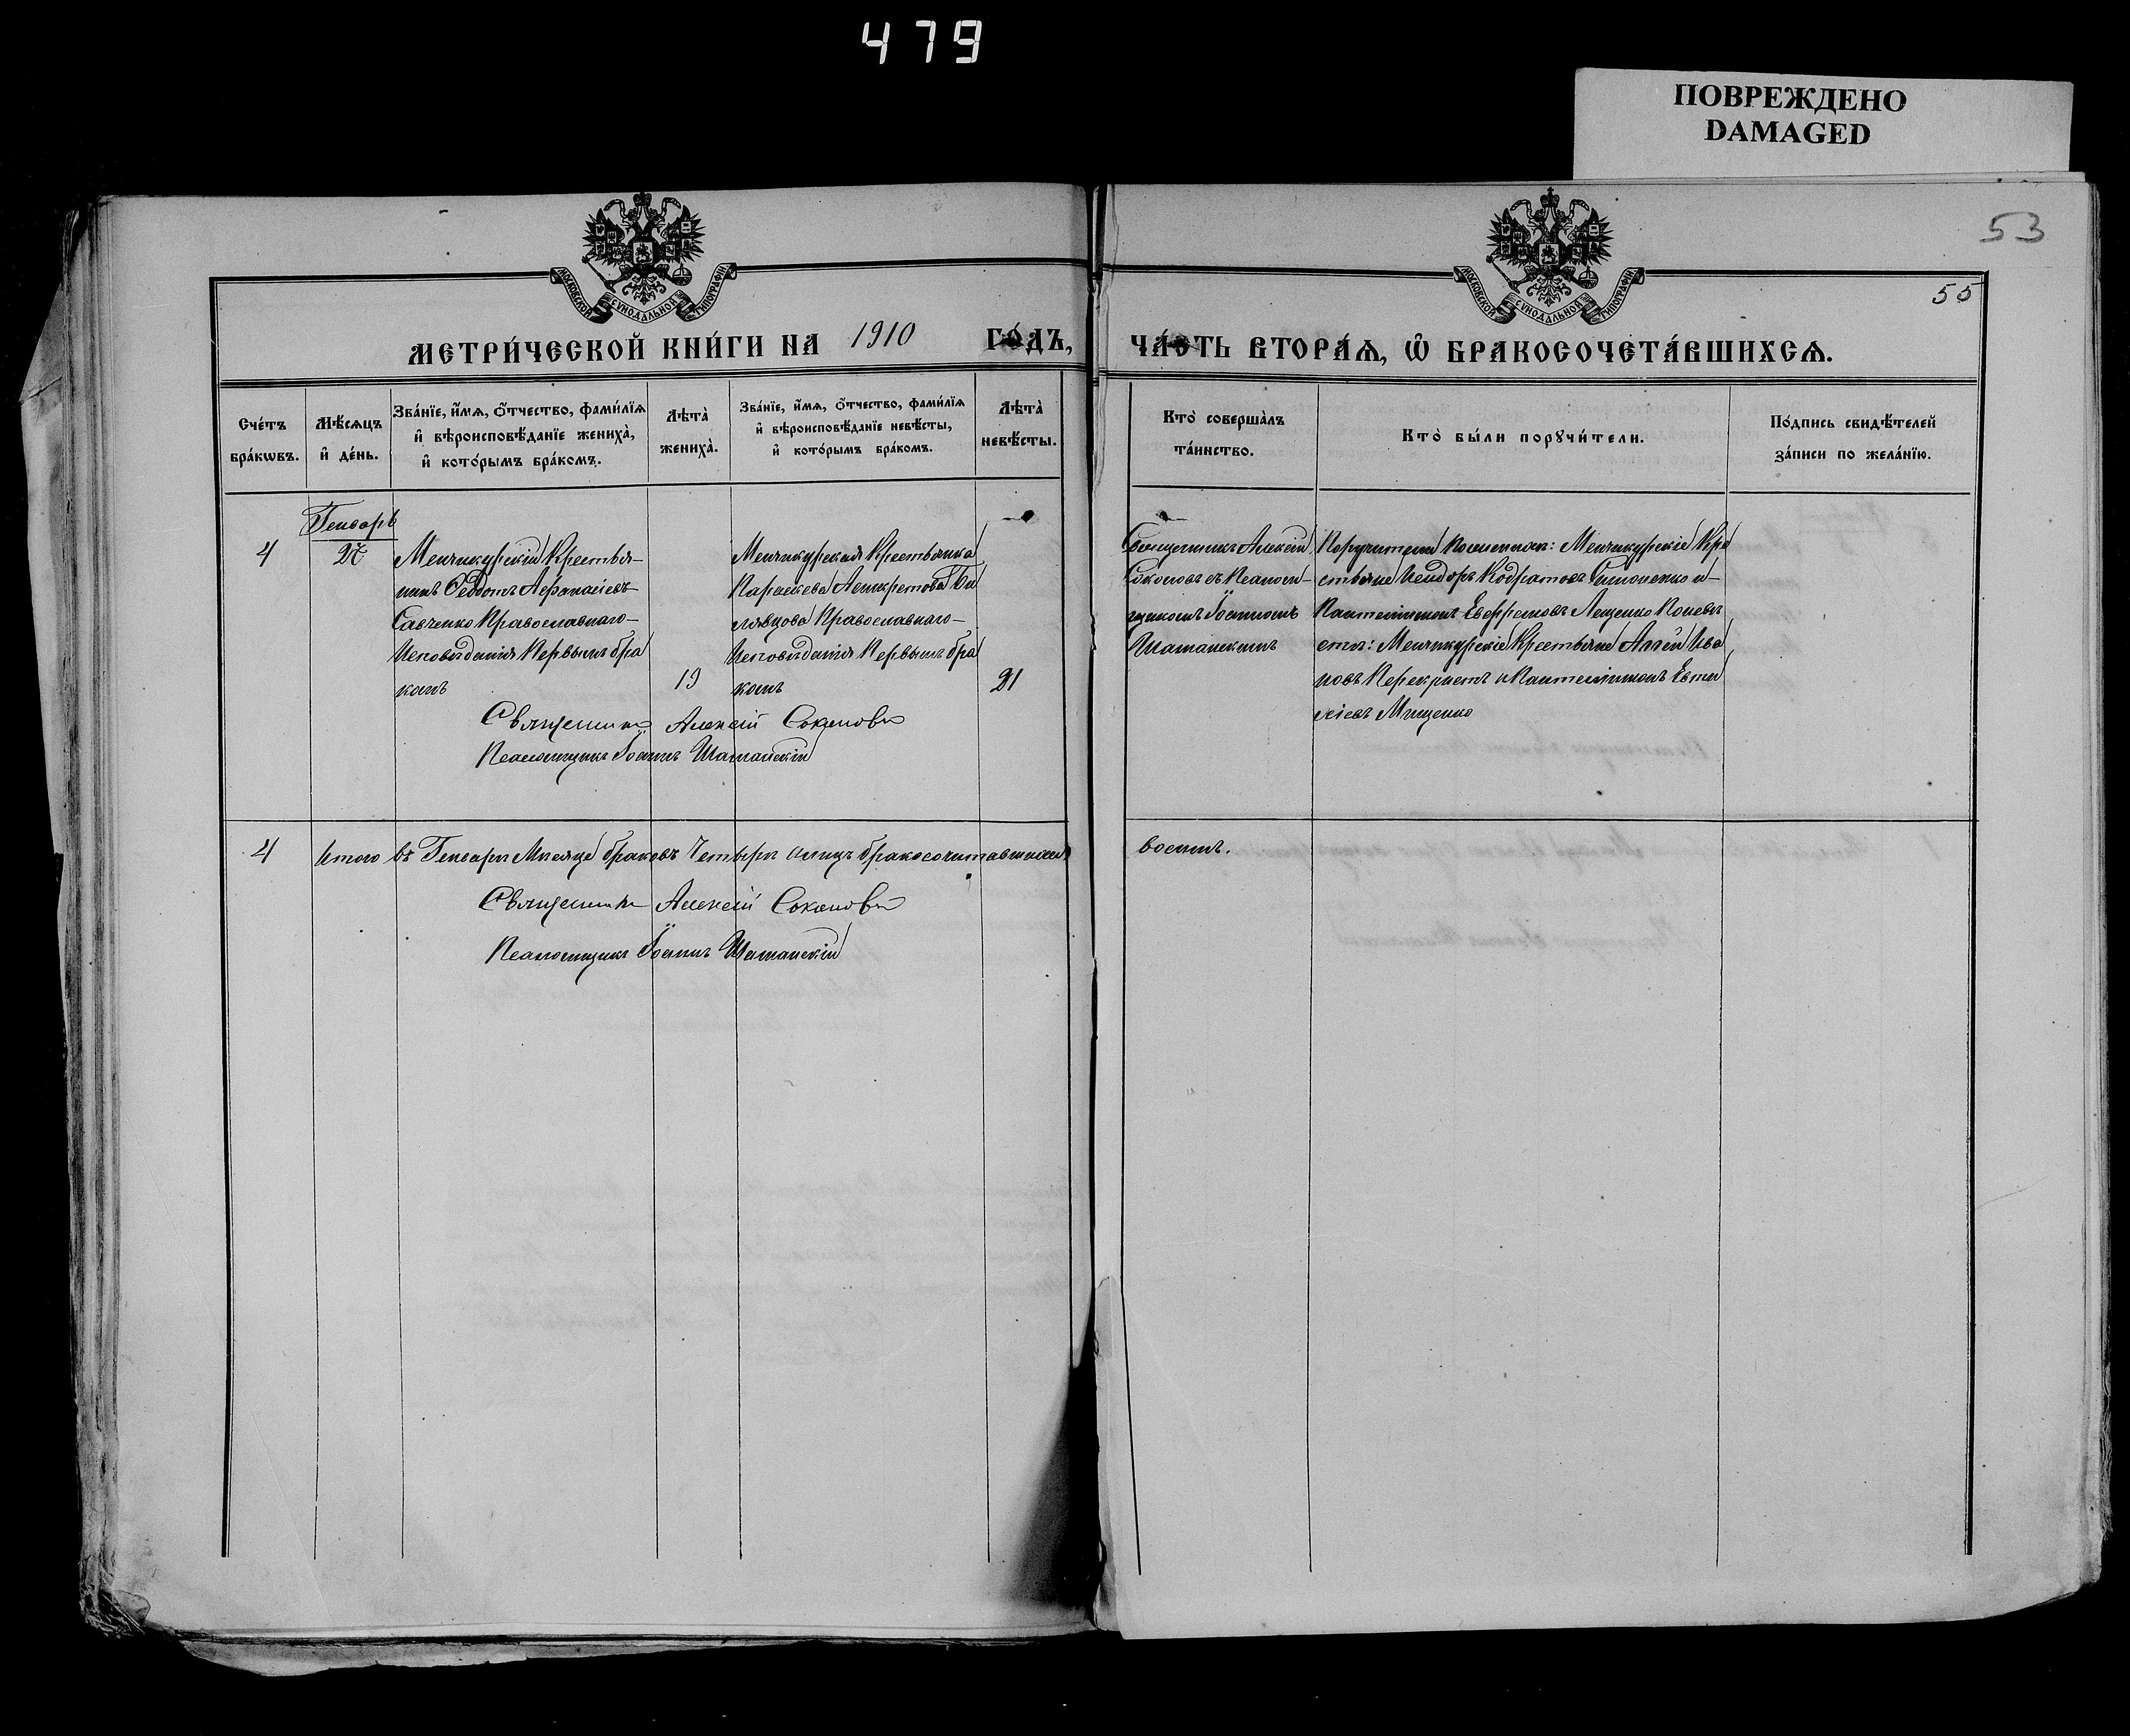 479
ПОВРЕЖДЕНО
DAMAGED
53
55
МОСКОВСКОЙ СѴНОДАЛЬНОЙ ТИПОГРАФІИ
МОСКОВСКОЙ СѴНОДАЛЬНОЙ ТИПОГРАФІИ
МЕТРИ́ЧЕСКОЙ КНИ́ГИ НА 1910 ГО́ДЪ, ЧА́СТЬ ВТОРА́Ѧ, Ѽ БРАКОСОЧЕТА́ВШИХСѦ.
Сче́тъ бра́кѡвъ.
Мѣ́сѧцъ и҆ де́нь.
Зва́нїе, и҆́мѧ, ѻ҆́тчество, фами́лїѧ и҆ вѣроисповѣ́данїе жениха̀, и҆ кото́рымъ бра́комъ.
Лѣта̀ жениха̀.
Зва́нїе, и҆́мѧ, ѻ҆́тчество, фами́лїѧ и҆ вѣроисповѣ́данїе невѣ́сты, и҆ кото́рымъ бра́комъ.
Лѣта̀ невѣ́сты.
Кто̀ соверша́лъ та́инство.
Кто̀ бы́ли порꙋчи́тели.
По́дпись свидѣ́телей за́писи по жела́нїю.
Генварь
4
Менчикурскій Крестья-
нинъ Ѳедотъ Аѳанасіевъ
Савченко Православнаго-
Исповѣданія Первымъ бра
комъ
19
Менчикурская Крестьянка
Параскева Асикретова
Православнаго-
Исповѣданія Первымъ бра
комъ
21
Священникъ Алексій
Соколовъ съ Псалом
щикомъ Іоанномъ
Шаманскимъ
Поручители По женихѣ: Менчикурскіе Кре
стьяне Исидоръ Кодратовъ Тимоненко и-
Пантелимонъ Евфремовъ Лещенко По невѣ
стѣ: Менчикурскіе Крестьяне Ива
новъ Перехристъ и Пантелимонъ Евти
хіевъ Мищенко
Священникъ Алексій Соколовъ
Псаломщикъ Іоаннъ Шаманскій
4 Итого въ Генварѣ Мѣсяцѣ браковъ Четыре лицъ бракосочитавшихся восемь.
Священникъ Алексій Соколовъ
Псаломщикъ Іоаннъ Шаманскій